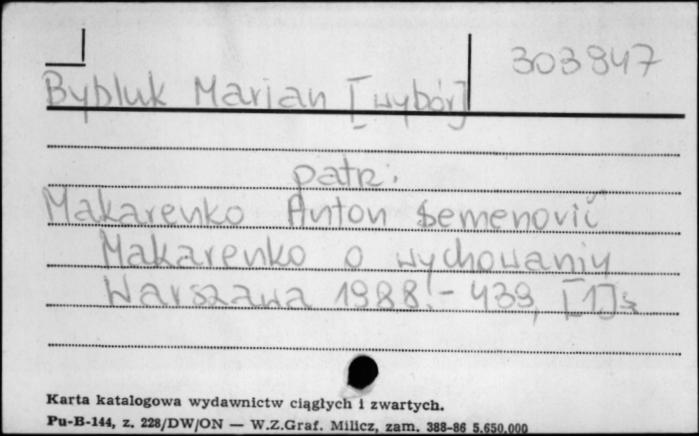 303847
Bybluk Marian [wybór]
patrz:
Makarenko Anton Semenovič
Makarenko o wychowaniu
Warszawa 1988.- 439, [1]s
Karta katalogowa wydawnictw ciągłych i zwartych.
Pu-B-144, z. 228/DW/ON — W.Z.Graf. Milicz, zam. 388-86 5.650.000